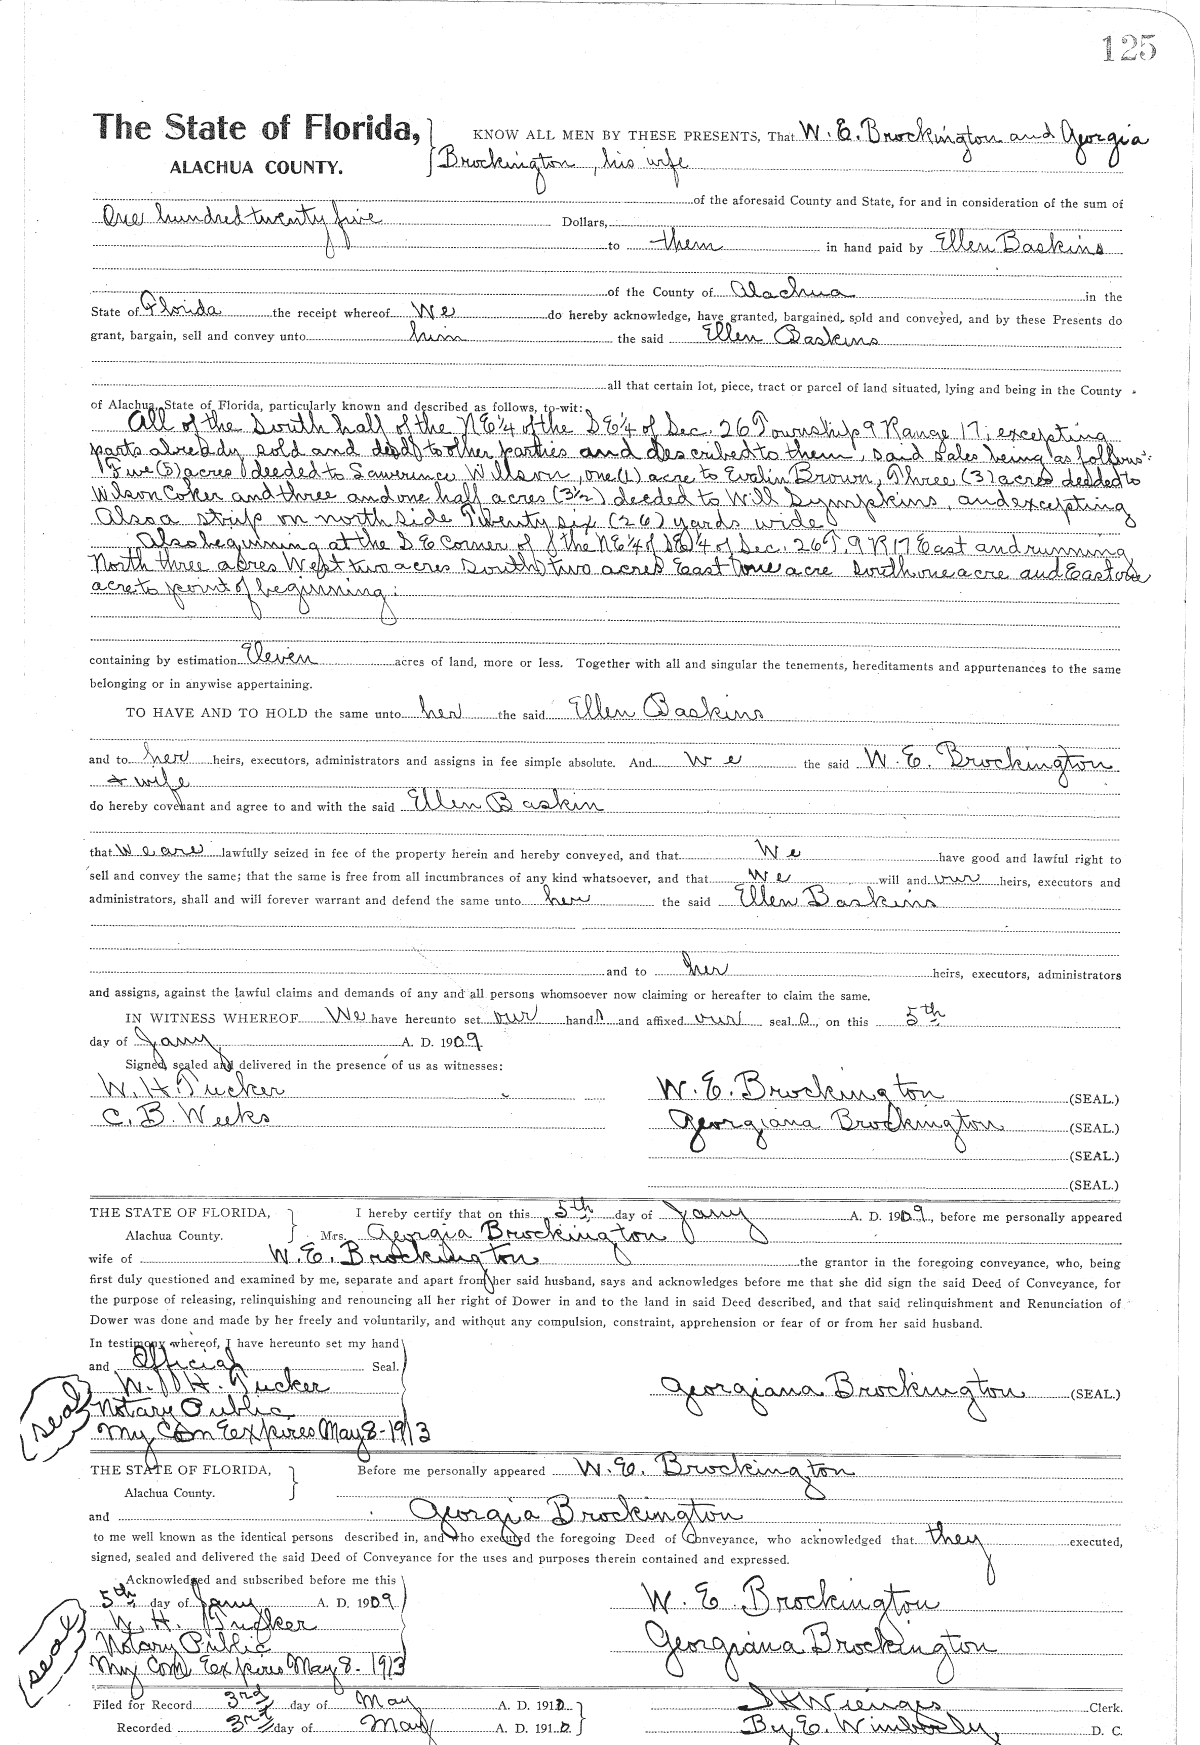 125
The State of Florida, KNOW ALL MEN BY THESE PRESENTS, That W. E. Brockington and Georgia
ALACHUA COUNTY. Brockington, his wife
of the aforesaid County and State, for and in consideration of the sum of
One hundred twenty five Dollars,
to them in hand paid by Ellen Baskins
of the County of Alachua in the
State of Florida the receipt whereof We do hereby acknowledge, have granted, bargained, sold and conveyed, and by these Presents do
grant, bargain, sell and convey unto him the said Ellen Baskins
all that certain lot, piece, tract or parcel of land situated, lying and being in the County
of Alachua, State of Florida, particularly known and described as follows, to-wit:
All of the South half of the NE¼ of the SE¼ of Sec. 26 Township 9 Range 17, excepting
parts already sold and deeded to other parties and described to them, said sales being as follows:
Five (5) acres deeded to Lawrence Willson, one (1) acre to Evalin Brown, Three (3) acres deeded to
Wilson Coker and three and one half acres (3½) deeded to Will Sympkins, and excepting
Also a strip on north side Twenty six (26) yards wide
Also beginning at the SE Corner of the NE¼ of SE¼ of Sec. 26 T. 9 R 17 East and running
North three acres West two acres South two acres East one acre south one acre and East one
acre to point of beginning.
containing by estimation Eleven acres of land, more or less. Together with all and singular the tenements, hereditaments and appurtenances to the same
belonging or in anywise appertaining.
TO HAVE AND TO HOLD the same unto her the said Ellen Baskins
and to her heirs, executors, administrators and assigns in fee simple absolute. And we the said W. E. Brockington
& wife
do hereby covenant and agree to and with the said Ellen Baskin
that we are lawfully seized in fee of the property herein and hereby conveyed, and that We have good and lawful right to
sell and convey the same; that the same is free from all incumbrances of any kind whatsoever, and that We will and our heirs, executors and
administrators, shall and will forever warrant and defend the same unto her the said Ellen Baskins
and to her heirs, executors, administrators
and assigns, against the lawful claims and demands of any and all persons whomsoever now claiming or hereafter to claim the same.
IN WITNESS WHEREOF We have hereunto set our hands and affixed our seal s, on this 5th
day of Jany A. D. 1909
Signed, sealed and delivered in the presence of us as witnesses:
W. H. Tucker W. E. Brockington (SEAL.)
C. B. Weeks Georgiana Brockington (SEAL.)
(SEAL.)
(SEAL.)
THE STATE OF FLORIDA, I hereby certify that on this 5th day of Jany A. D. 1909, before me personally appeared
Alachua County. Mrs. Georgia Brockington
wife of W. E. Brockington the grantor in the foregoing conveyance, who, being
first duly questioned and examined by me, separate and apart from her said husband, says and acknowledges before me that she did sign the said Deed of Conveyance, for
the purpose of releasing, relinquishing and renouncing all her right of Dower in and to the land in said Deed described, and that said relinquishment and Renunciation of
Dower was done and made by her freely and voluntarily, and without any compulsion, constraint, apprehension or fear of or from her said husband.
In testimony whereof, I have hereunto set my hand
and Official Seal.
W. H. Tucker Georgiana Brockington (SEAL.)
(seal) Notary Public
My Com Expires May 8-1913
THE STATE OF FLORIDA, Before me personally appeared W. E. Brockington
Alachua County.
and Georgia Brockington
to me well known as the identical persons described in, and who executed the foregoing Deed of Conveyance, who acknowledged that they executed,
signed, sealed and delivered the said Deed of Conveyance for the uses and purposes therein contained and expressed.
Acknowledged and subscribed before me this
5th day of Jany A. D. 1909 W. E. Brockington
W. H. Tucker
(seal) Notary Public Georgiana Brockington
My Com Expires May 8-1913
Filed for Record 3rd day of May A. D. 1912 S H Wienges Clerk.
Recorded 3rd day of May A. D. 1912 By E. Wimberly, D. C.